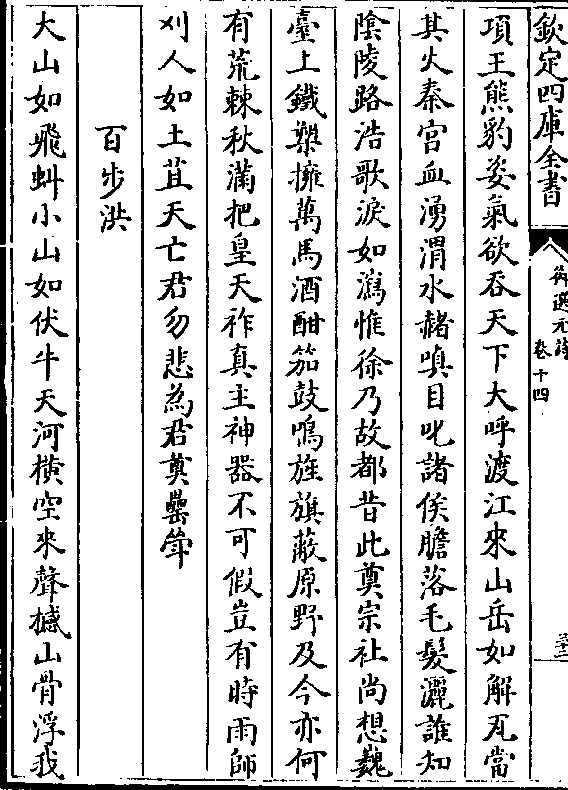 欽定四庫全書
御選元詩
卷十四
三三
項王熊豹姿氣欲吞天下大呼渡江來山岳如解瓦當
其火秦宮血湧渭水赭嗔目叱諸侯膽落毛髮灑誰知
陰陵路浩歌淚如瀉惟徐乃故都昔此奠宗社尚想巍
臺上鐵槊擁萬馬酒酣笳鼓鳴旌旗蔽原野及今亦何
有荒棘秋滿把皇天祚真主神器不可假豈有時雨師
刈人如土苴天亡君勿悲為君奠罍斝
百步洪
大山如飛虯小山如伏牛天河橫空來聲撼山骨浮我